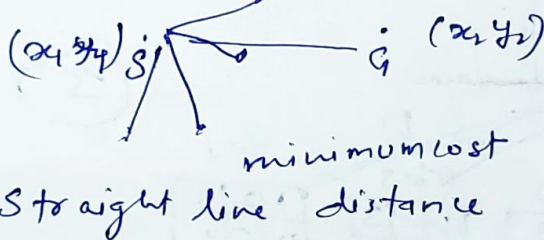 (x₁ y₁) S G (x₂ y₂)
minimum cost
Straight line distance